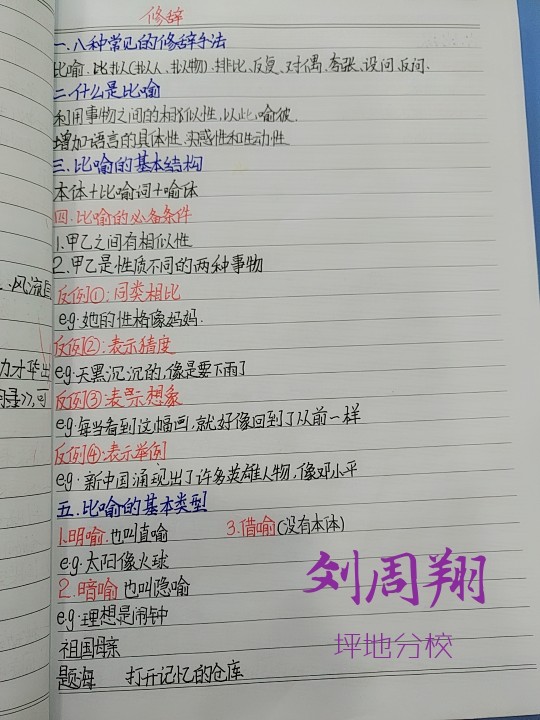 修辞
一.八种常见的修辞手法
比喻.比拟(拟人、拟物).排比、反复、对偶、夸张、设问、反问.
二.什么是比喻
利用事物之间的相似性,以此喻彼.
增加语言的具体性、实感性和生动性
三.比喻的基本结构
本体+比喻词+喻体
四.比喻的必备条件
1.甲乙之间有相似性
2.甲乙是性质不同的两种事物
反例①:同类相比
e.g.她的性格像妈妈.
反例②:表示猜度
e.g.天黑沉沉的,像是要下雨了
反例③:表示想象
e.g.每当看到这幅画,就好像回到了从前一样
反例④:表示举例
e.g.新中国涌现出了许多英雄人物,像邓小平
五.比喻的基本类型
1.明喻.也叫直喻 3.借喻(没有本体)
e.g.太阳像火球
2.暗喻 也叫隐喻
e.g.理想是闹钟
祖国母亲
题海 打开记忆的仓库
刘周翔
坪地分校